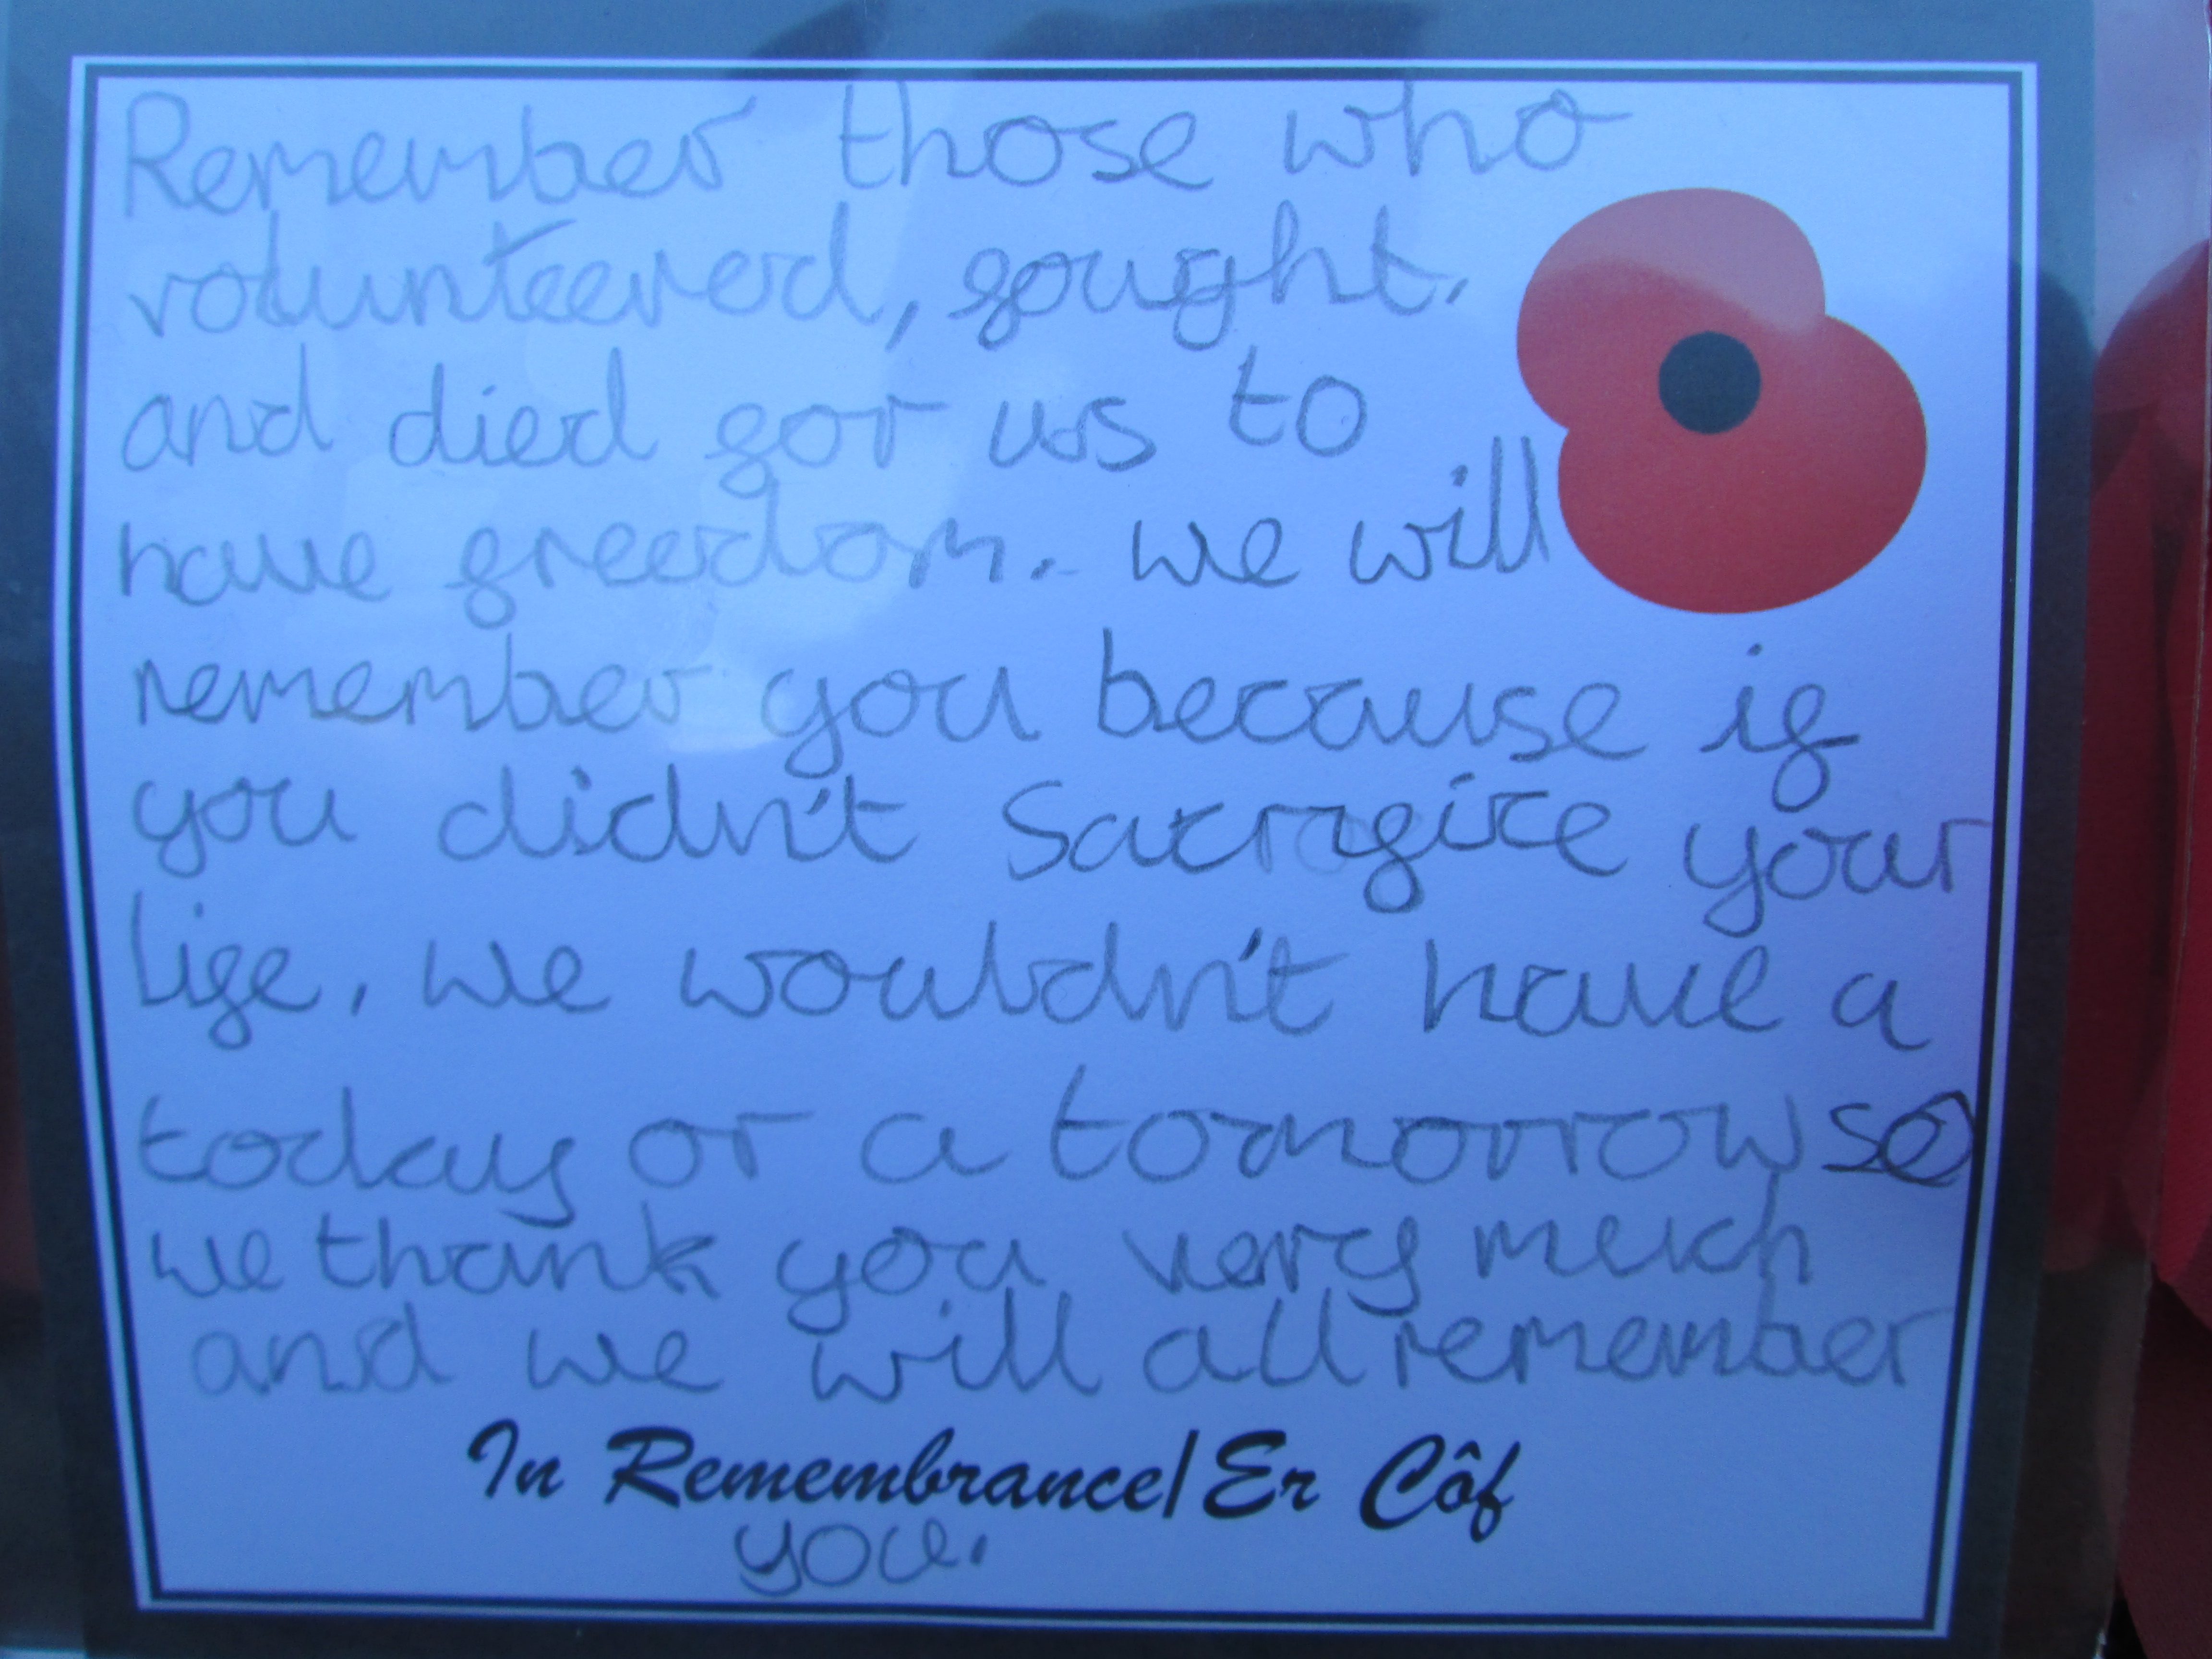 Remember those who
volunteered, fought,
and died for us to
have freedom. we will
remember you because if
you didn't Sacrafice your
life, we wouldn't have a
today or a tomorrow so
we thank you very much
and we will all remember
In Remembrance/Er Côf
you.